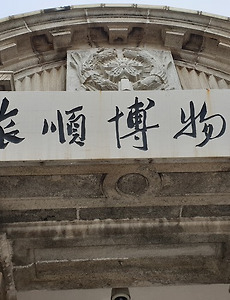 旅順博物